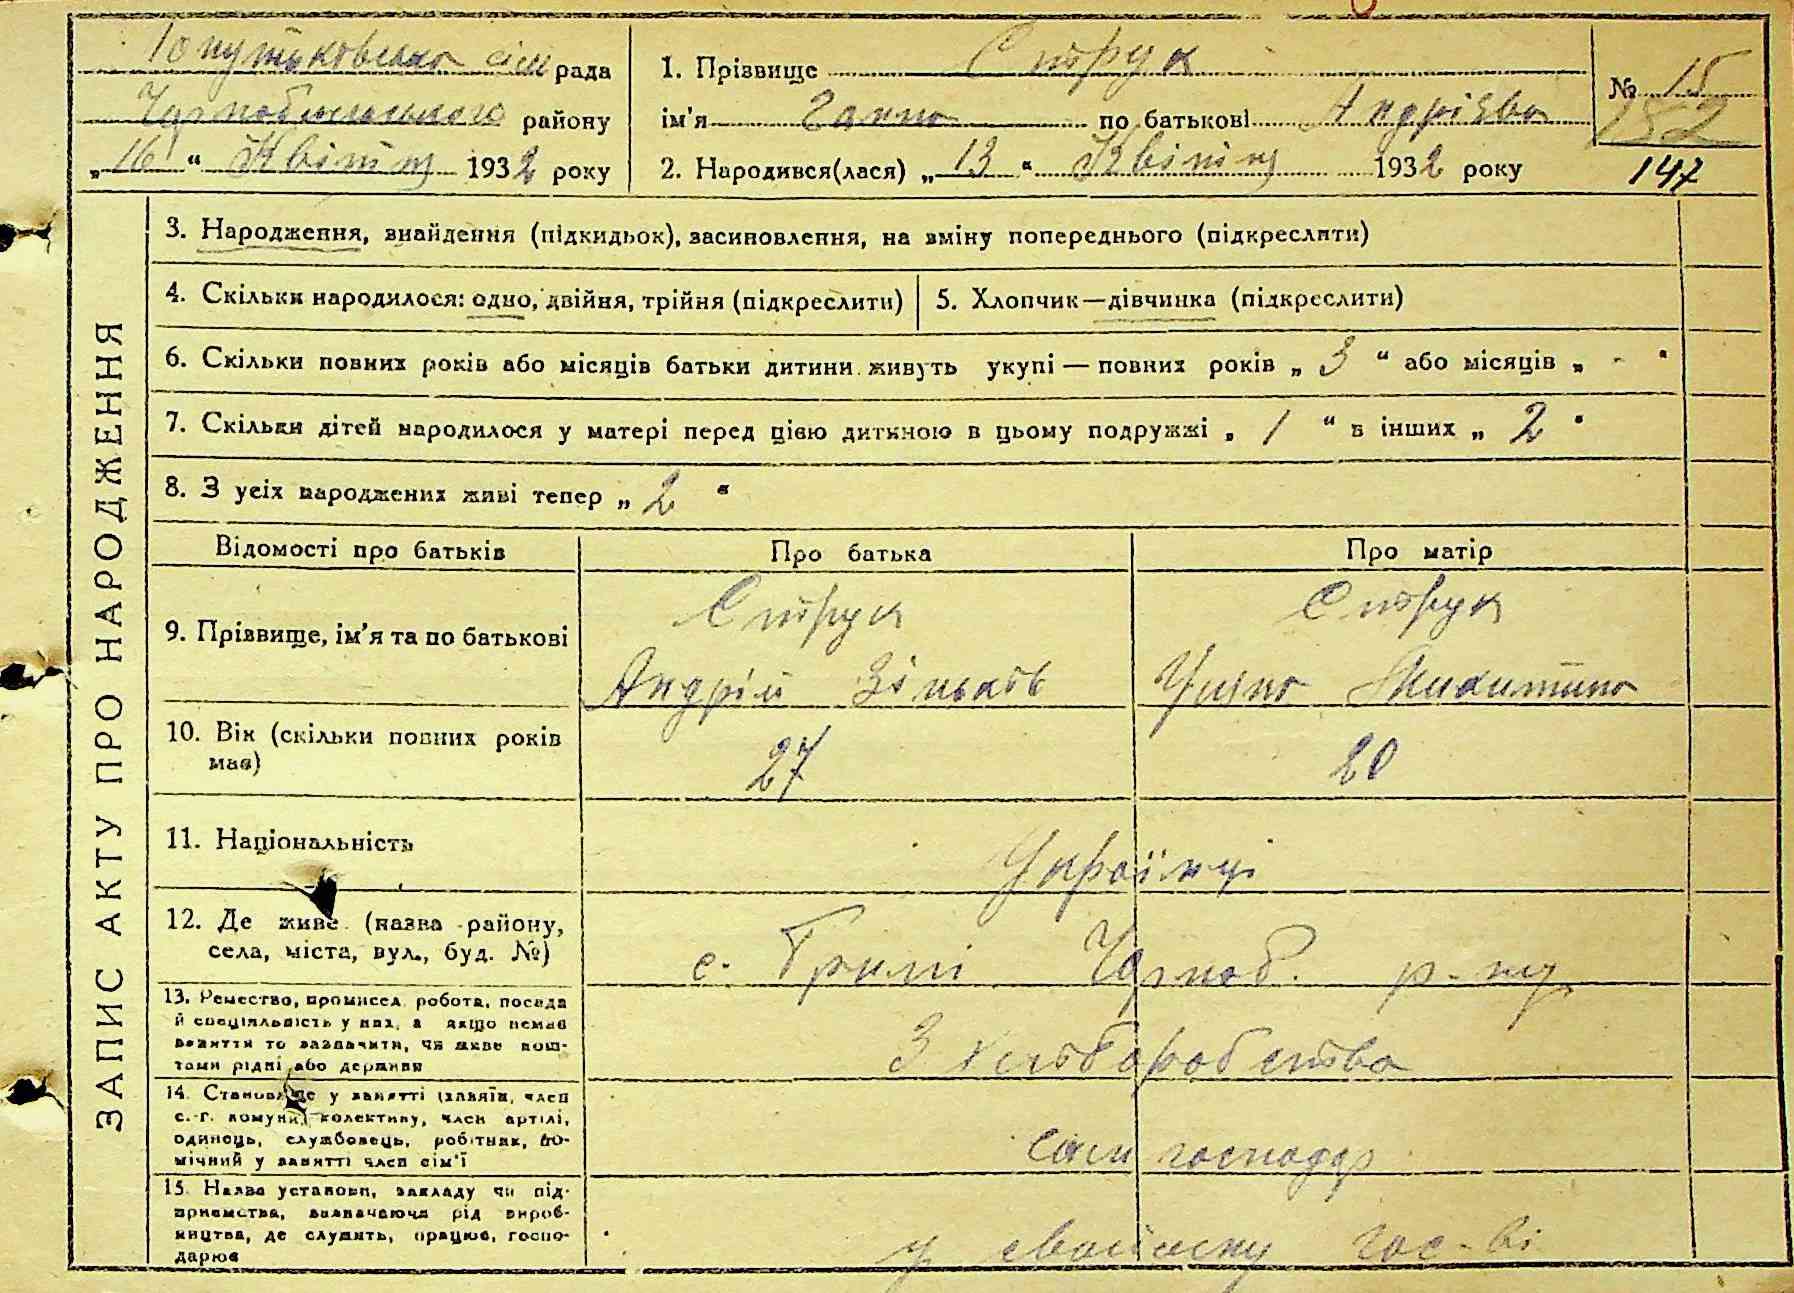 сіль рада
Чорнобильського району
„16“ Квітня 1932 року
1. Прізвище Струк
ім'я Ганна по батькові Андріева
2. Народився(лася) „13“ Квітня 1932 року
№ 15
252
147
ЗАПИС АКТУ ПРО НАРОДЖЕННЯ
3. Народження, знайдення (підкидьок), засиновлення, на зміну попереднього (підкреслити)
4. Скільки народилося: одно, двійня, трійня (підкреслити)
5. Хлопчик—дівчинка (підкреслити)
6. Скільки повних років або місяців батьки дитини живуть укупі — повних років „3“ або місяців „-“
7. Скільки дітей народилося у матері перед цією дитиною в цьому подружжі „1“ в інших „2“
8. З усіх народжених живі тепер „2“
Відомості про батьків
Про батька
Про матір
9. Прізвище, ім'я та по батькові
Струк
Андрій Зіньков
Струк
Уляна Микитина
10. Вік (скільки повних років
має)
27
20
11. Національність
Українці
12. Де живе (назва району,
села, міста, вул., буд. №)
с. Чорноб. р-ну
13. Ремество, промисел, робота, посада
й спеціяльність у них, а якщо немає
заняття то зазначити, чи живе кош-
тами рідні або держави
З хліборобства
14. Становище у занятті (хазяїн, член
с.-г. комуни, колективу, член артілі,
одинець, службовець, робітник, по-
мічний у занятті член сім'ї
сам господар
15. Назва установи, закладу чи під-
приємства, зазначаючи рід вироб-
ництва, де служить, працює, госпо-
дарює
у своїому гос-ві